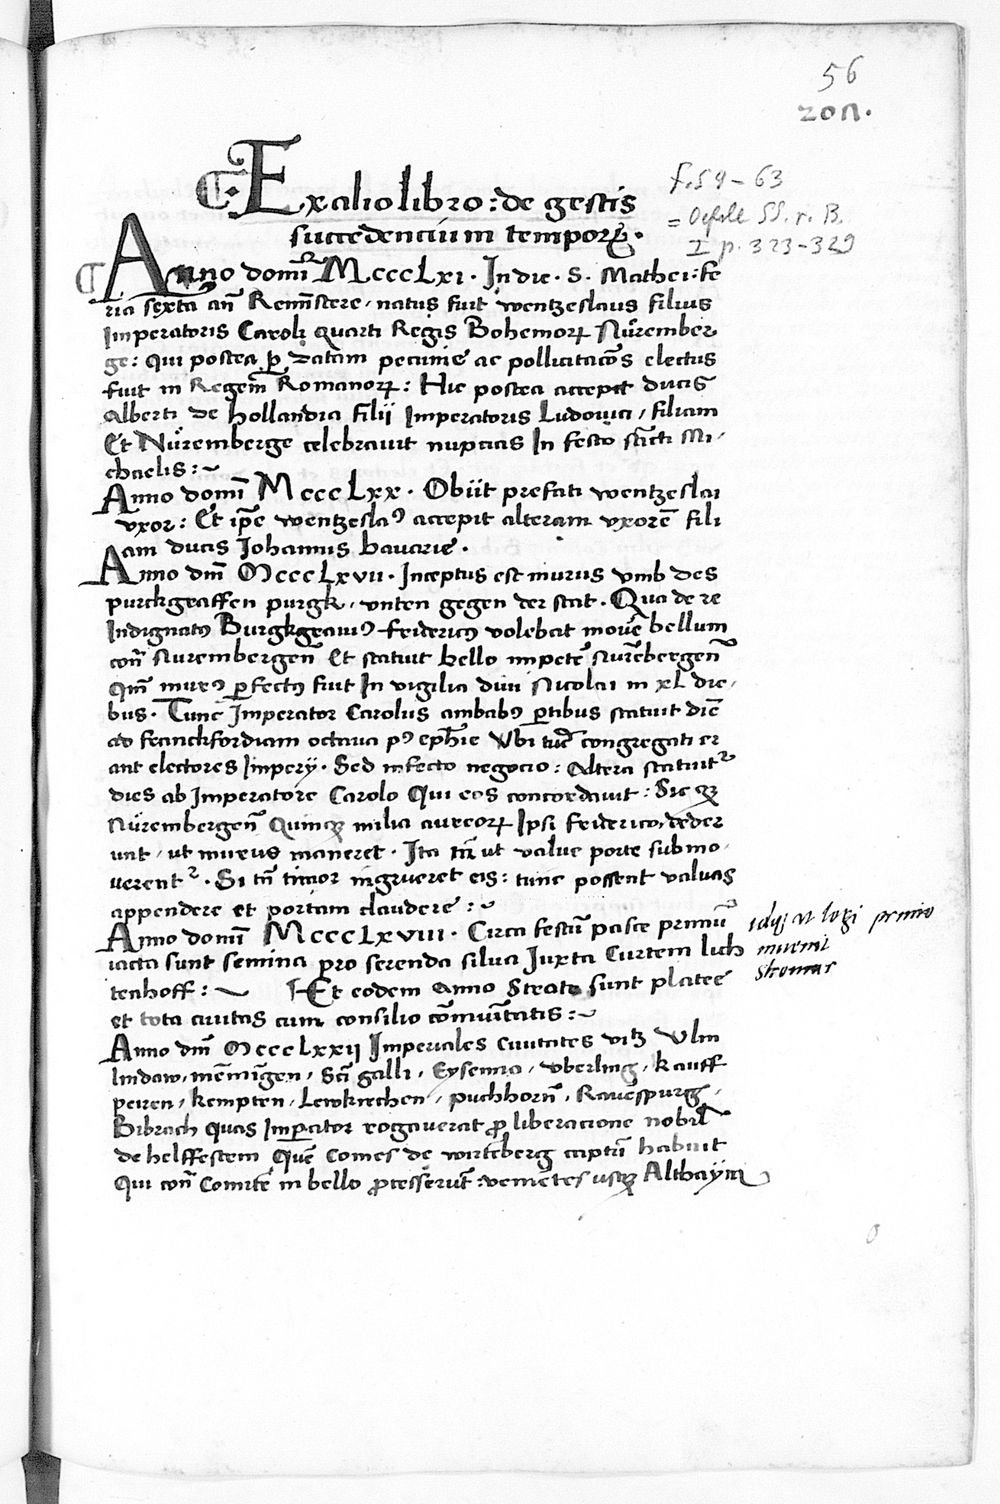 56
201.
f. 59-63
= Oefele SS. r. B.
I p. 323-329
Ex alio libro : de gestis
succedencium tempoꝝ.
Anno domī MccccLxi. In die. S. Mathei : fe
ria sexta an̄ Remīstere, natus fuit wentzeslaus filius
Imperatoris Caroli quarti Regis Bohemoꝝ Nürember
ge : qui postea ꝑ datam pecunie ac pollicitacōs electus
fuit in Regem̄ Romanoꝝ : Hic postea accepit ducis
Alberti de hollandia filii Imperatoris Ludovici, filiam
Et Nüremberge celebravit nupcias In festo sct̄i Mi,
chaelis :~
Anno domī MccccLxx. Obiit prefati wentzeslai
vxor : Et ip̄e wentzeslaꝰ accepit alteram vxorē fili
am ducis Johannis bavarie.
Anno dm̄ MccccLxvii. Inceptus est murus vmb des
purckgraffen purgk, vnten gegen der stat. Qua de re
Indignatꝰ Burgkgraviꝰ fridericꝰ volebat movē bellum
con̄ Nurembergen̄ Et statuit bello impetē Nurēbergen̄
qm̄ murꝰ ꝑfectꝰ fuit In vigilia divi Nicolai in xL die,
bus. Tunc Imperator Carolus ambabꝰ ꝑtibus statuit diē
ad franckfordiam octava pꝰ eph̄ie Vbi tūc congregati er
ant electores Imperij. Sed infecto negocio : Altera statuitᷣ
dies ab Imperatore Carolo Qui eos concordavit : Sic qꝫ
Nürembergen̄ Quinqꝫ milia aureoꝝ Ipsi friderico, deder
unt, ut murus maneret. Ita tn̄ ut valve porte submo,
verentᷣ. Si tn̄ timor ingrueret eis : tunc possent valvas
appendere et portam claudere :~
Anno domī MccccLxviii. Circa festū pasce primū
iacta sunt semina pro serenda silva Juxta Curtem lich
tenhoff :~ Et eodem Anno Strate sunt platee
et tota civitas cum consilio cōmun̄itatis :~
primo
Anno dm̄ MccccLxxij Imperiales Civitates vitz Vlm
lindaw, mēmīgen, Sct̄i galli, Eysenna, vberling, kauff
peiren, kempten, Lewkirchen, puchhorn̄, Ravespurg,
Bibrach quas Impator rogaverat ꝓ liberacione nobil̄
de helffestein Quē Comes de wirtēberg captū habuit
Qui con̄ Comitē in bello ꝓcesserūt : venientes usqꝫ Althaÿm